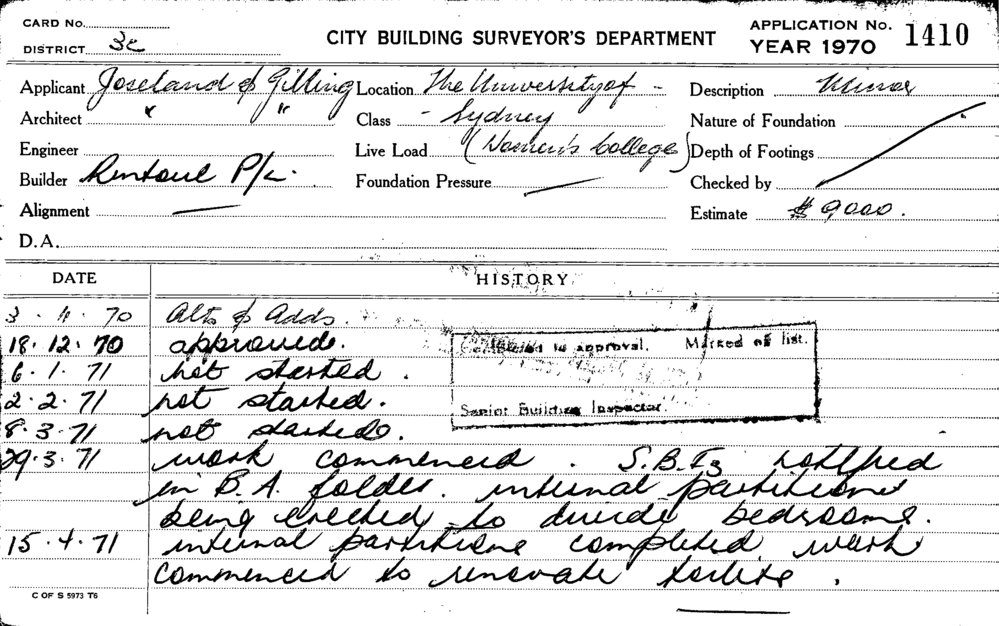 CARD No.
DISTRICT 3c
CITY BUILDING SURVEYOR'S DEPARTMENT
APPLICATION No. 1410
YEAR 1970
Applicant Joseland & Gilling
Location The University of -
Description Minor
Architect " "
Class - Sydney
Nature of Foundation
Engineer
Live Load (Women's College)
Depth of Footings
Builder Rentoul P/L.
Foundation Pressure
Checked by
Alignment
Estimate $9000.
D.A.
DATE HISTORY
3 . 11 . 70 Alts & Adds.
18.12.70 approved.
6.1.71 not started.
2.2.71 not started.
8.3.71 not started.
29.3.71 work commenced. S.B.I3 notified
in B.A. folder. internal partitions
being erected to divide bedrooms.
15.4.71 internal partitions completed work
commenced to renovate toilets.
to approval. Marked off list.
Senior Building Inspector.
C OF S 5973 T6